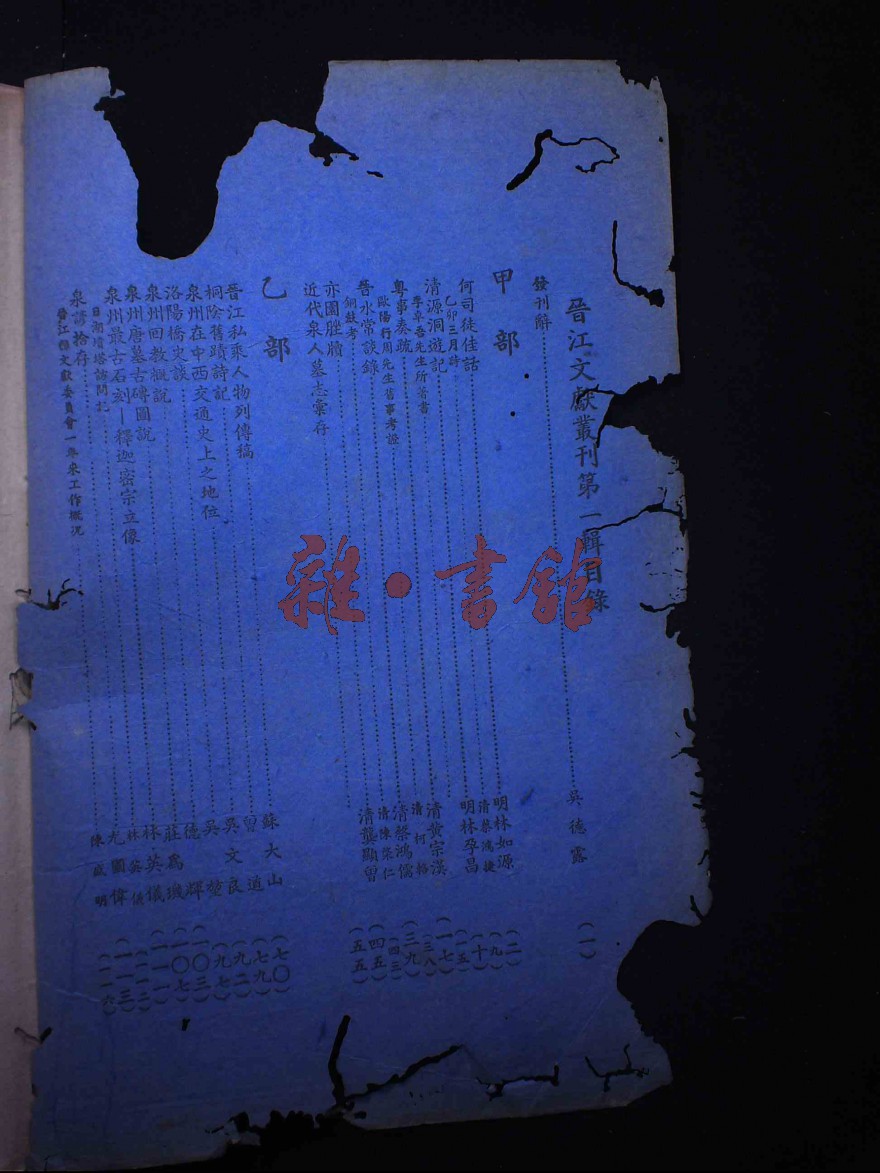 晉江文獻叢刊第一輯目錄
發刊辭 吳德露 (一)
甲部
何司徒佳話 明林如源 (二)
乙卯三月詩 清蔡鴻捷 (九)
清源洞遊記 明林孕昌 (十)
李卓吾先生所著書 (一五)
粵事奏疏 清黃宗漢 (一七)
歐陽行周先生省事考證 清何輅 (三八)
晉水常談錄 清蔡鴻儒 (三九)
銅鼓考 清陳棨仁 (四三)
亦園脞牘 清龔顯曾 (四五)
近代泉人墓志彙存 (五五)
乙部
晉江私乘人物列傳稿 蘇大山 (七〇)
桐陰舊蹟詩記 曾遒 (七九)
泉州在中西交通史上之地位 吳文良 (九二)
洛陽橋史談 吳楚 (九七)
泉州回教概說 德輝 (一〇三)
泉州唐墓古磚圖說 莊爲璣 (一〇七)
泉州最古石刻—釋迦密宗立像 林英儀 (一一一)
日湖墳塔訪問記 林英儀 (一一二)
泉諺拾存 尤國偉 (一一三)
晉江縣文獻委員會一年來工作概況 陳盛明
雜·書館